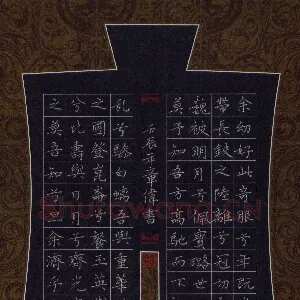 余幼好此奇服兮年既
帶長鋏之陸離兮冠
巍被明月兮佩寶璐世
莫予知吾方高馳而不
壬辰年章偉書
虬兮驂白螭吾與重華
之圃登崑崙兮餐玉英
兮比壽與日月兮齊光
之莫吾知兮旦余濟乎